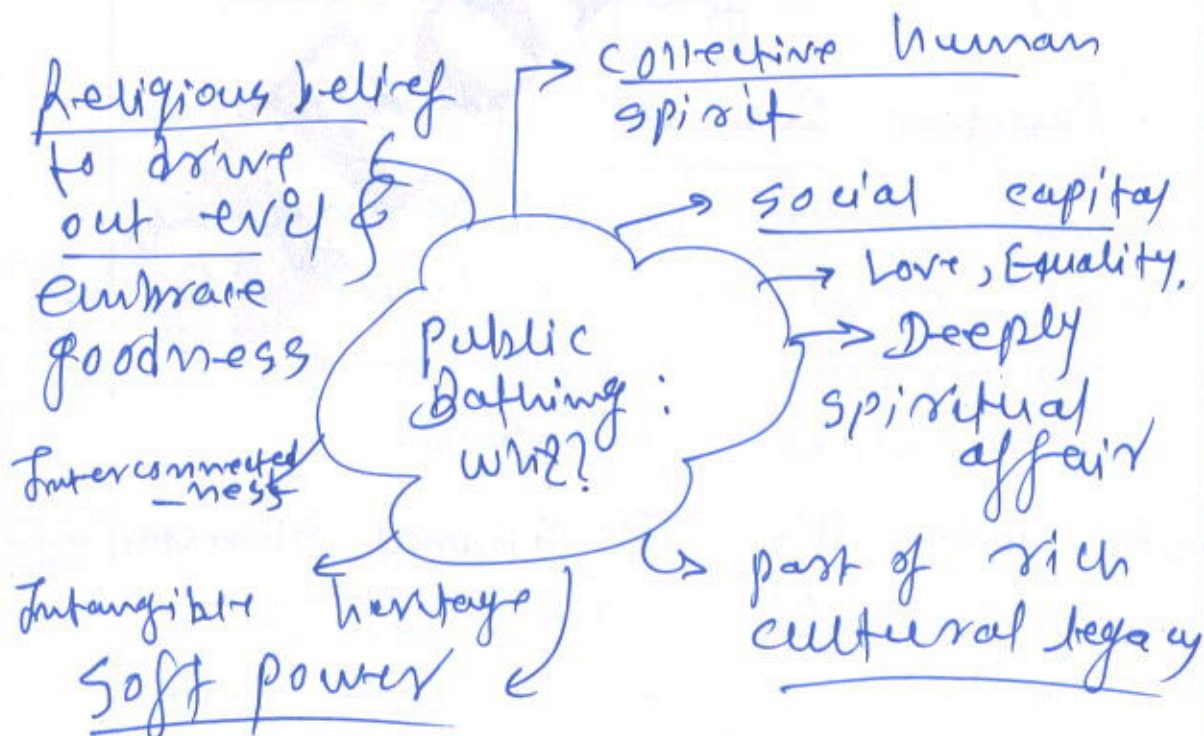 Religious belief
to drive
out evil
embrace
goodness
Interconnected
-ness
Intangible heritage
soft power
Public
Bathing :
Why?
collective human
spirit
social capital
Love, Equality.
Deeply
spiritual
affair
part of rich
cultural legacy